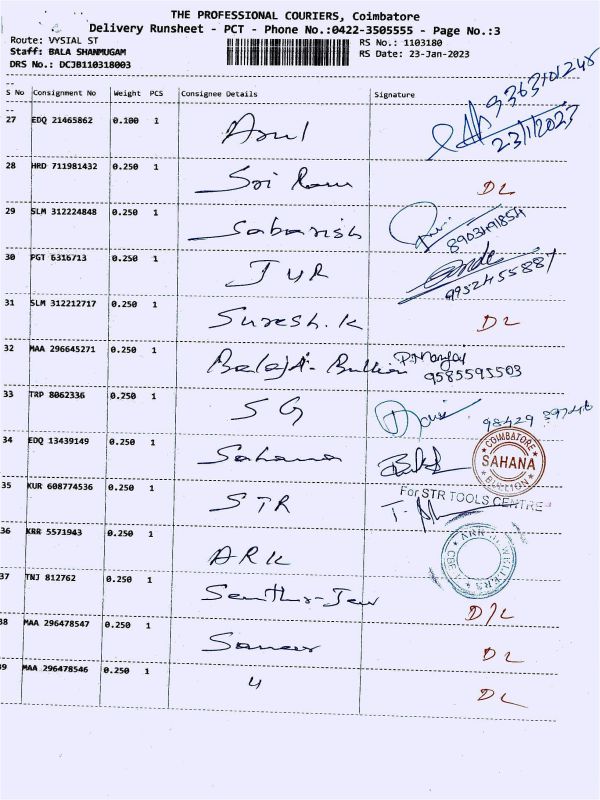 THE PROFESSIONAL COURIERS, Coimbatore
Delivery Runsheet - PCT - Phone No.:0422-3505555 - Page No.:3
Route: VYSIAL ST
Staff: BALA SHANMUGAM
DRS No.: DCJB110318003
RS No.: 1103180
RS Date: 23-Jan-2023
S No Consignment No Weight PCS Consignee Details Signature
27 EDQ 21465862 0.100 1 Arul 9363101248
23/1/2023
28 HRD 711981432 0.250 1 Sri Ram DL
29 SLM 312224848 0.250 1 Sabarish 8903491854
30 PGT 6316713 0.250 1 JYR 9952455887
31 SLM 312212717 0.250 1 Suresh.K DL
32 MAA 296645271 0.250 1 Balaji - Bullion 9585595503
33 TRP 8062336 0.250 1 SG 98429 89746
34 EDQ 13439149 0.250 1 Sahana
COIMBATORE
SAHANA
BULLION
35 KUR 608774536 0.250 1 STR
For STR TOOLS CENTRE
36 KRR 5571943 0.250 1 ARK
37 TNJ 812762 0.250 1 D/L
38 MAA 296478547 0.250 1 DL
39 MAA 296478546 0.250 1 4 DL